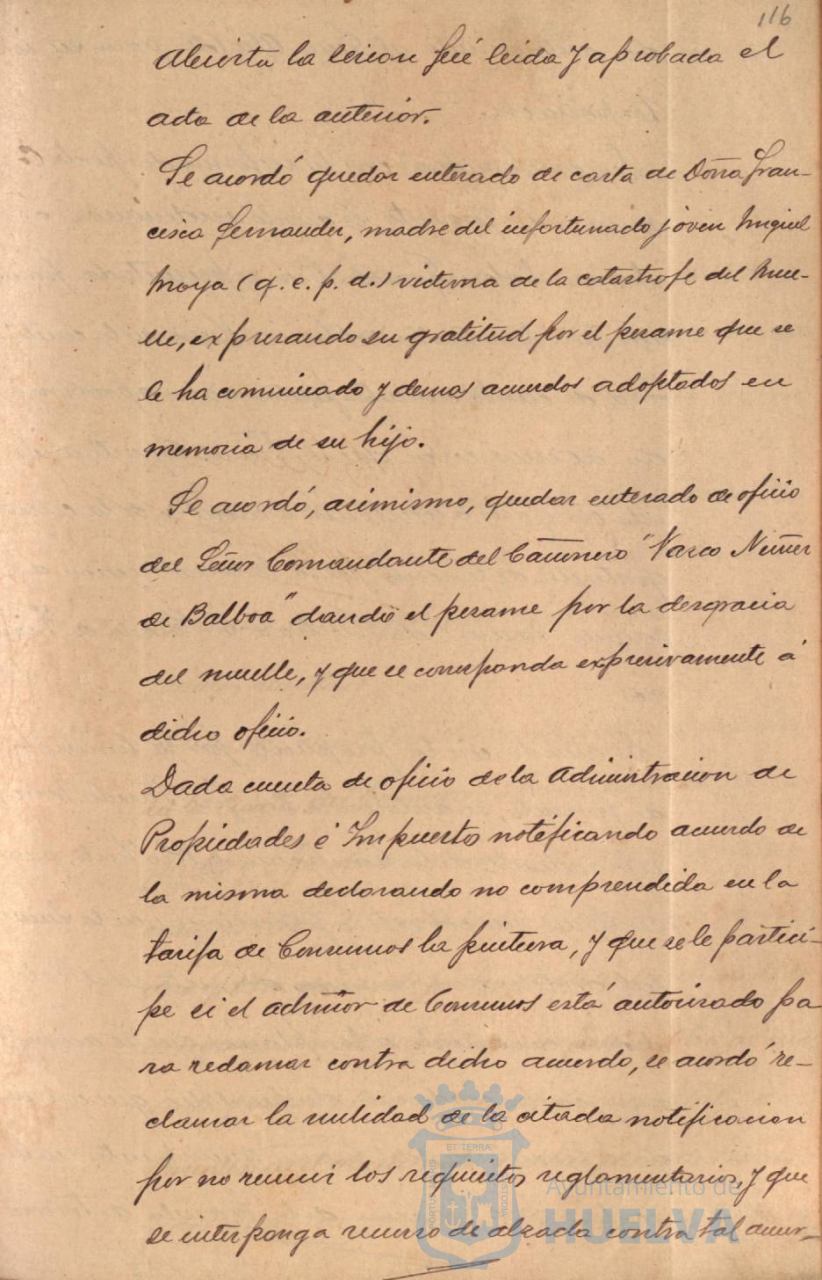 116
Abierta la sesion fué leida y aprobada el
acta de la anterior.
Se acordó quedar enterado de carta de Doña Fran-
cisca Fernandez, madre del infortunado joven Miguel
Moya (q. e. p. d.) victima de la catastrofe del Mue-
lle, expresando su gratitud por el pesame que se
le ha comunicado y demas acuerdos adoptados en
memoria de su hijo.
Se acordó, asimismo, quedar enterado de oficio
del Señor Comandante del Cañonero "Vasco Nuñez
de Balboa" dando el pesame por la desgracia
del muelle, y que se corresponda expresivamente á
dicho oficio.
Dada cuenta de oficio de la Administracion de
Propiedades é Impuestos notificando acuerdo de
la misma declarando no comprendida en la
tarifa de Consumos la , y que se le partici-
pe si el admñor de Consumos está autorizado pa
ra reclamar contra dicho acuerdo, se acordó re-
clamar la nulidad de la citada notificacion
por no reunir los requisitos reglamentarios, y que
se interponga recurso de alzada contra tal acuer-
ET TERRA
Ayuntamiento de
HUELVA